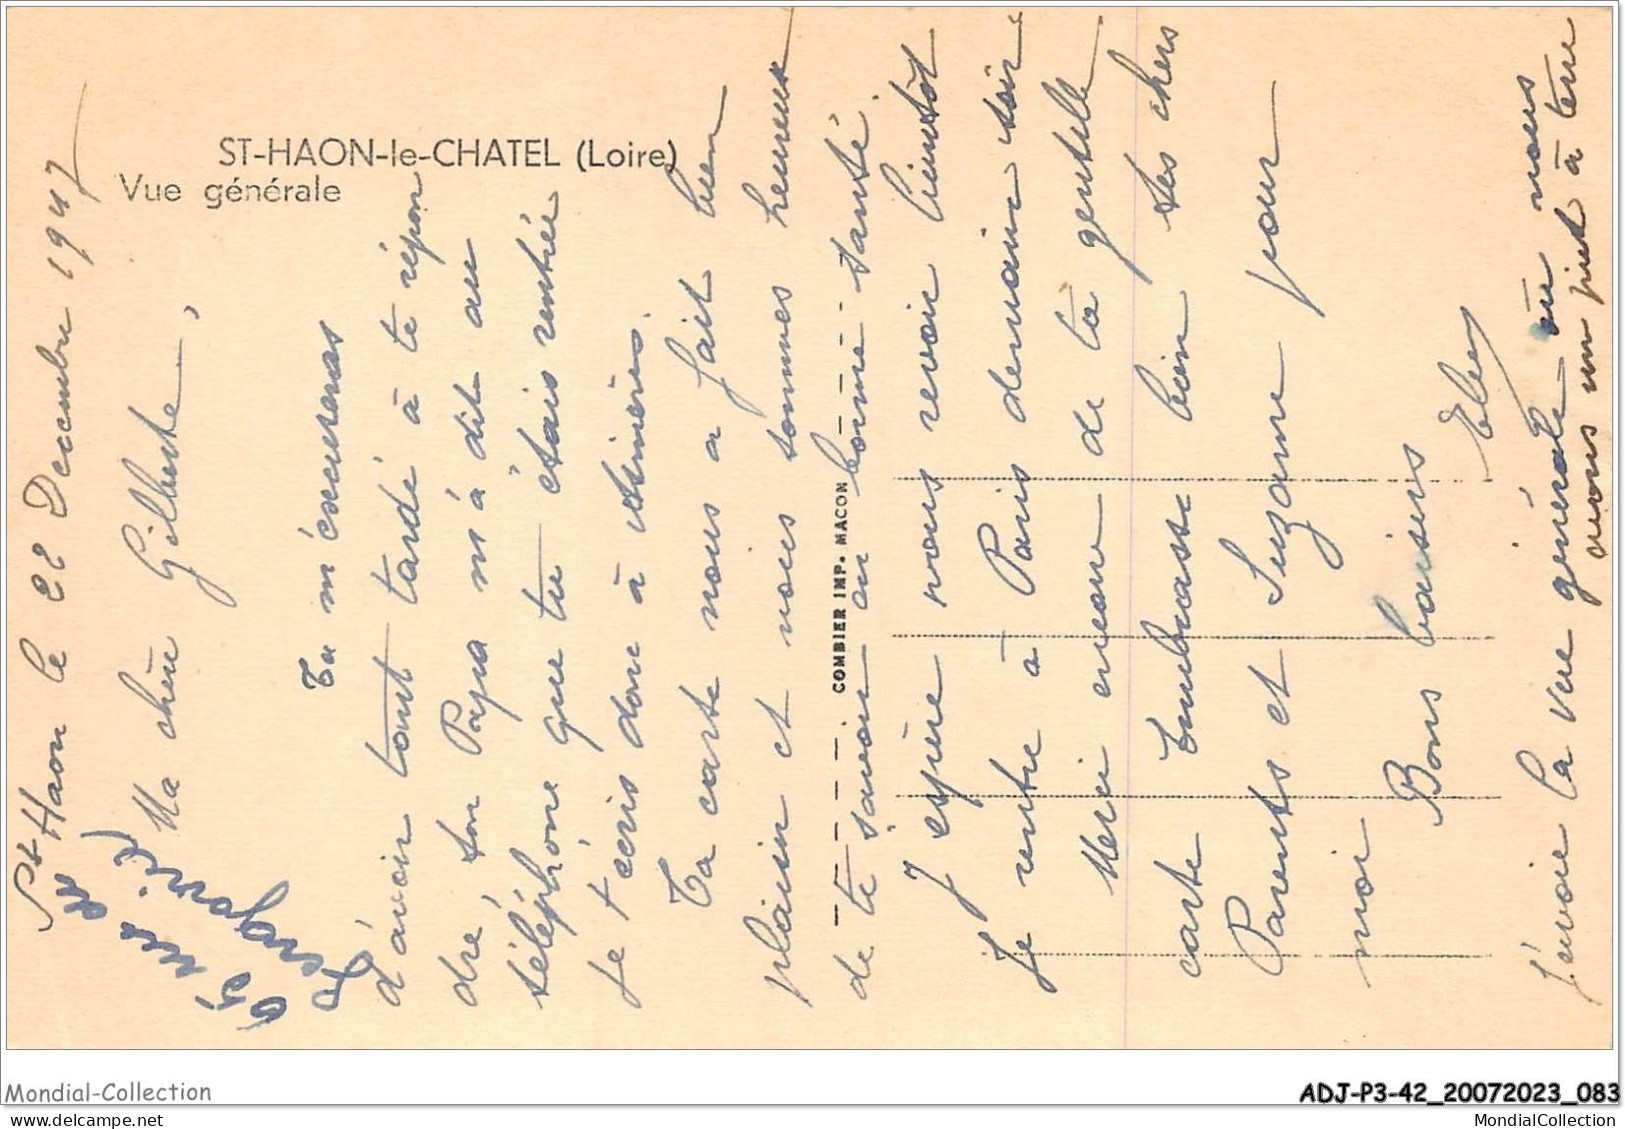 ST-HAON-le-CHATEL (Loire)
Vue générale
COMBIER IMP. MACON
St Haon le 22 Decembre 1947
65 rue de
Ma chère Gilberte,
Tu m'excuseras
d'avoir tant tardé à te répon
dre, ton Papa m'a dit au
téléphone que tu étais rentrée
Je t'écris donc à Asnières.
Ta carte nous a fait bien
plaisir et nous sommes heureux
de te savoir en bonne santé.
J'espère vous revoir bientôt
Je rentre à Paris demain soir
Merci encore de ta gentille
carte Embrasse bien tes chers
Parents et Suzanne pour
moi
Bons baisers
J'envoie la vue générale où nous
avons un pied à terre
Mondial-Collection
ADJ-P3-42_20072023_083
MondialCollection